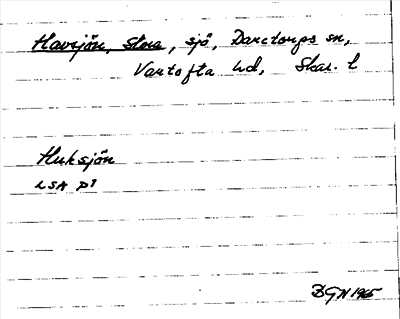 Havsjön, Stora, sjö, Daretorps sn,
Vartofta hd, Skar. l
Huksjön
LSA D1
BGN 1965